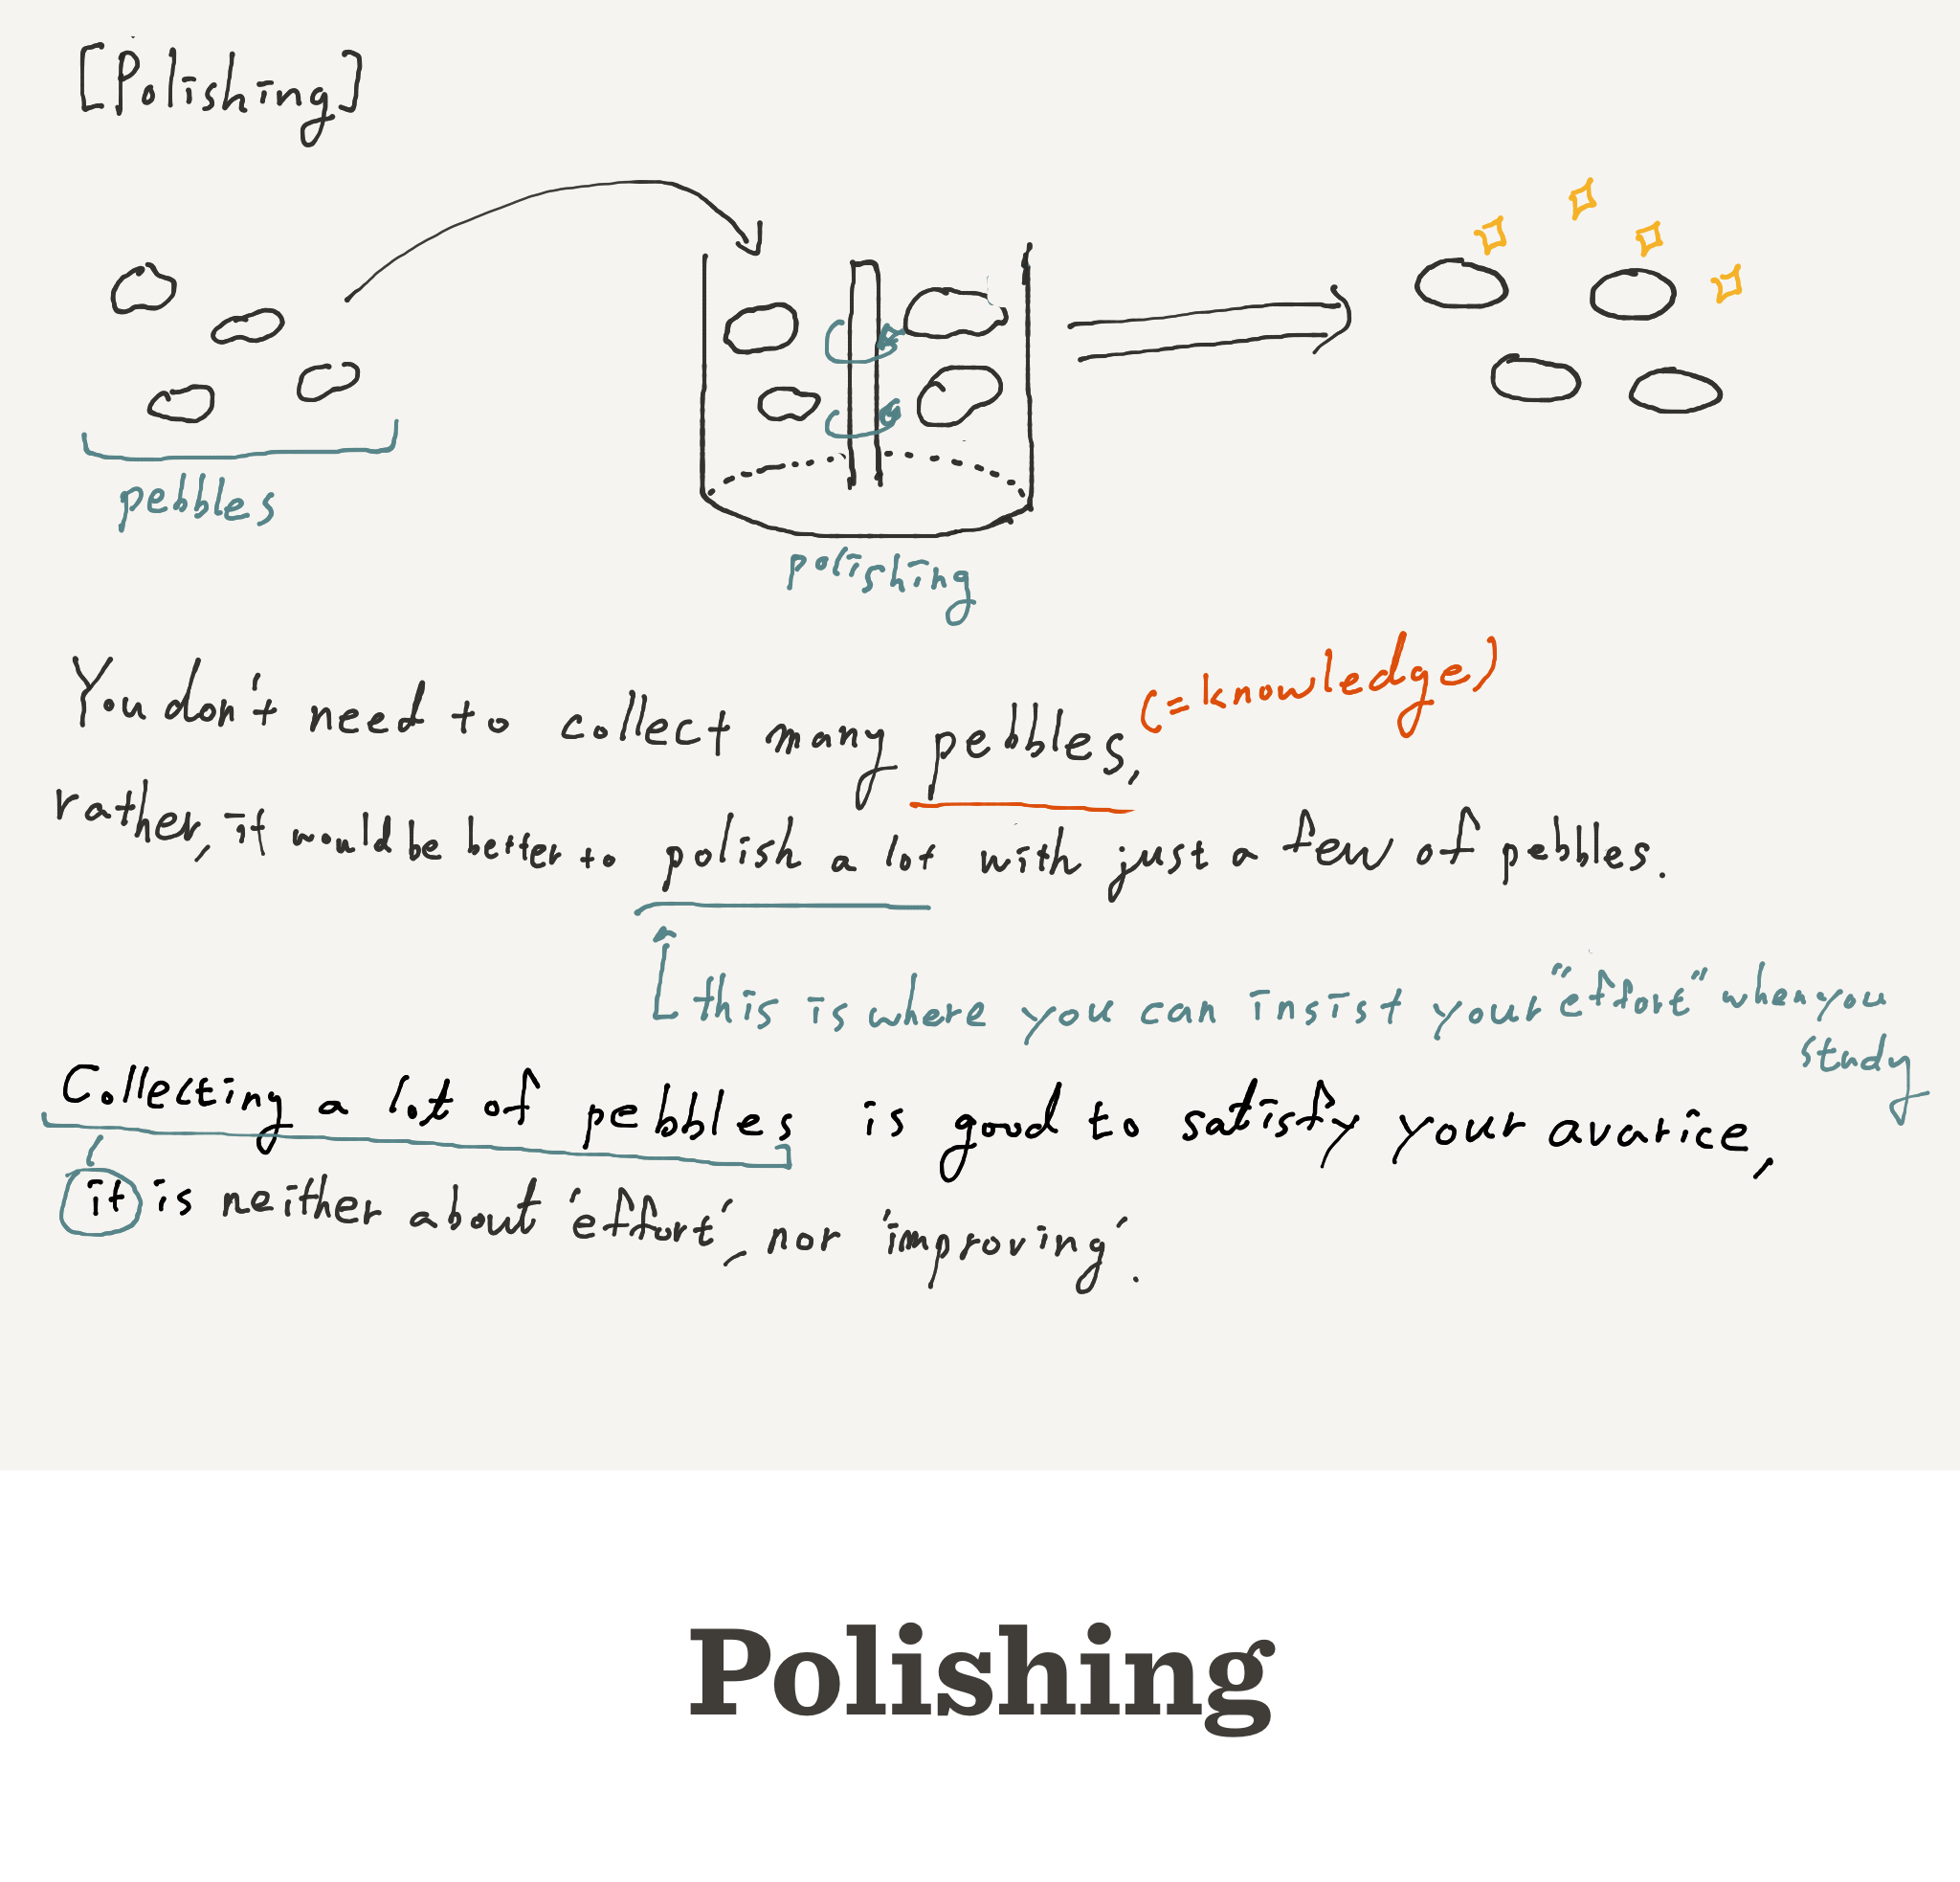 [Polishing]
pebbles
polishing
You don't need to collect many pebbles, (=knowledge)
rather, it would be better to polish a lot with just a few of pebbles.
this is where you can insist your "effort" when you
study
Collecting a lot of pebbles is good to satisfy your avarice,
it is neither about 'effort', nor 'improving'.
Polishing